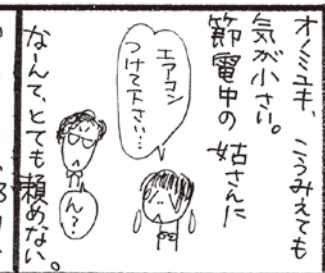 オノミユキ、こうみえても
気が小さい。
節電中の姑さんに
エアコン
つけて下さい…
ん?
なーんて、とても頼めない。